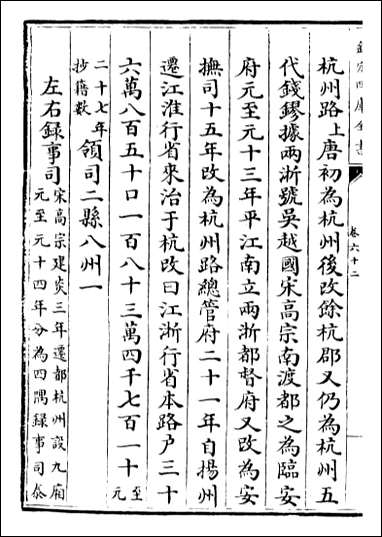 欽定四庫全書
卷六十二
杭州路上唐初為杭州後改餘杭郡又仍為杭州五
代錢鏐據兩浙號吳越國宋高宗南渡都之為臨安
府元至元十三年平江南立兩浙都督府又改為安
撫司十五年改為杭州路總管府二十一年自揚州
遷江淮行省來治于杭改曰江浙行省本路户三十
六萬八百五十口一百八十三萬四千七百一十至元
二十七年抄籍數領司二縣八州一
左右録事司宋高宗建炎三年遷都杭州設九廂
元至元十四年分為四隅録事司泰